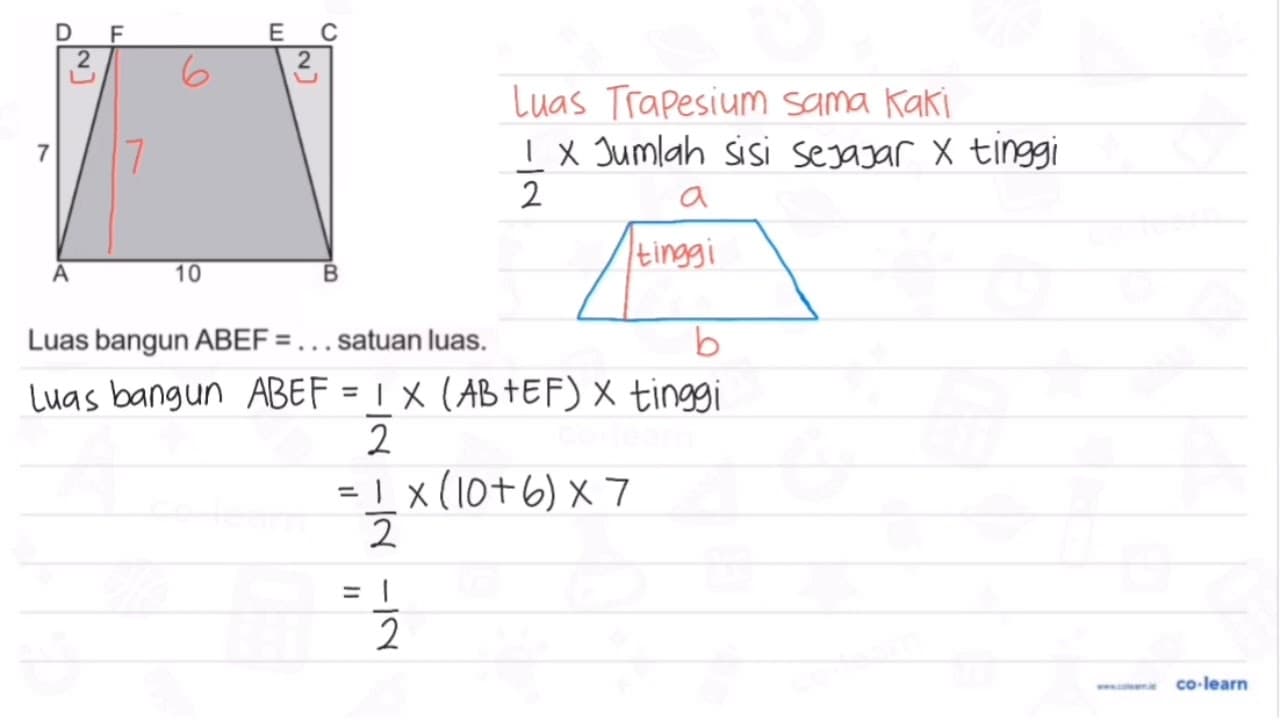 D F E C
2 6 2
7 7
A 10 B
Luas Trapesium sama kaki
1/2 x Jumlah sisi sejajar x tinggi
a
tinggi
b
Luas bangun ABEF = . . . satuan luas.
Luas bangun ABEF = 1/2 x (AB+EF) x tinggi
= 1/2 x (10+6) x 7
= 1/2
co-learn
co-learn
co-learn
co-learn
www.colearn.id co·learn